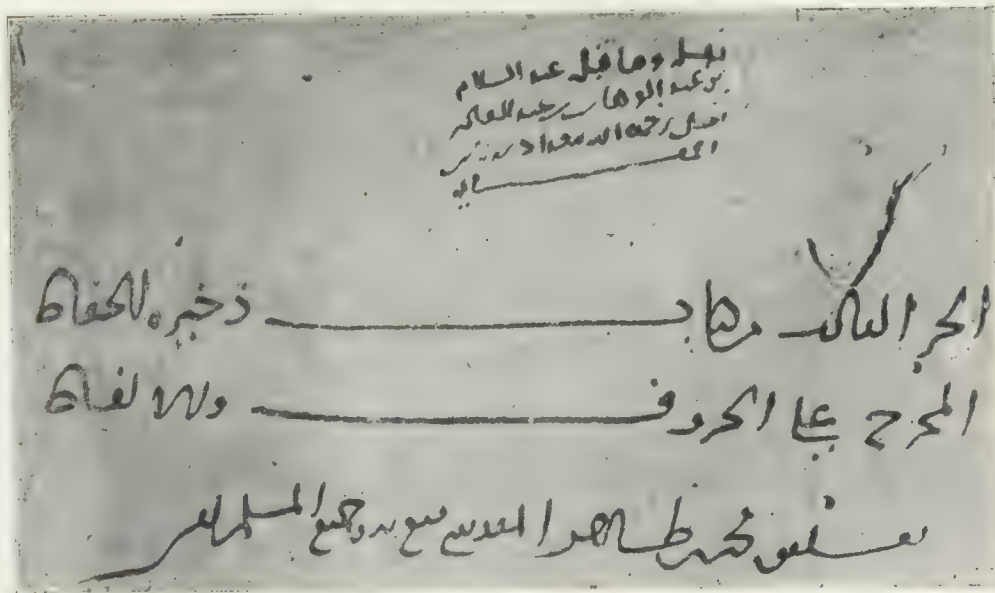 وما قبله عبد السلام
بن عبد الوهاب بن عبد القادر
رحمه الله
الجز الثالث من كتاب ذخيره الحفاظ
المخرج على الحروف والالفاظ
تصنيف محمد بن طاهر المقدسي نفع به وجميع المسلمين